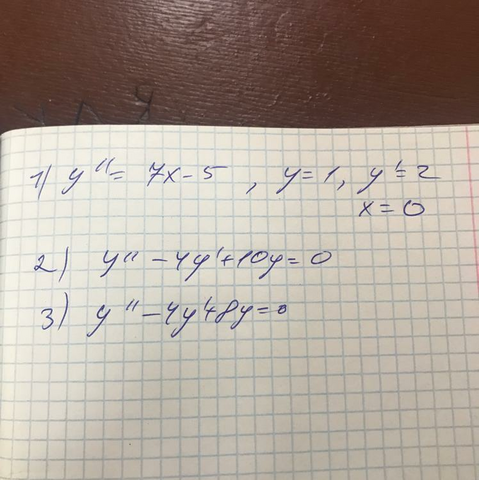 1) y'' = 7x - 5, y = 1, y' = 2
x = 0
2) y'' - 4y' + 10y = 0
3) y'' - 4y' + 8y = 0